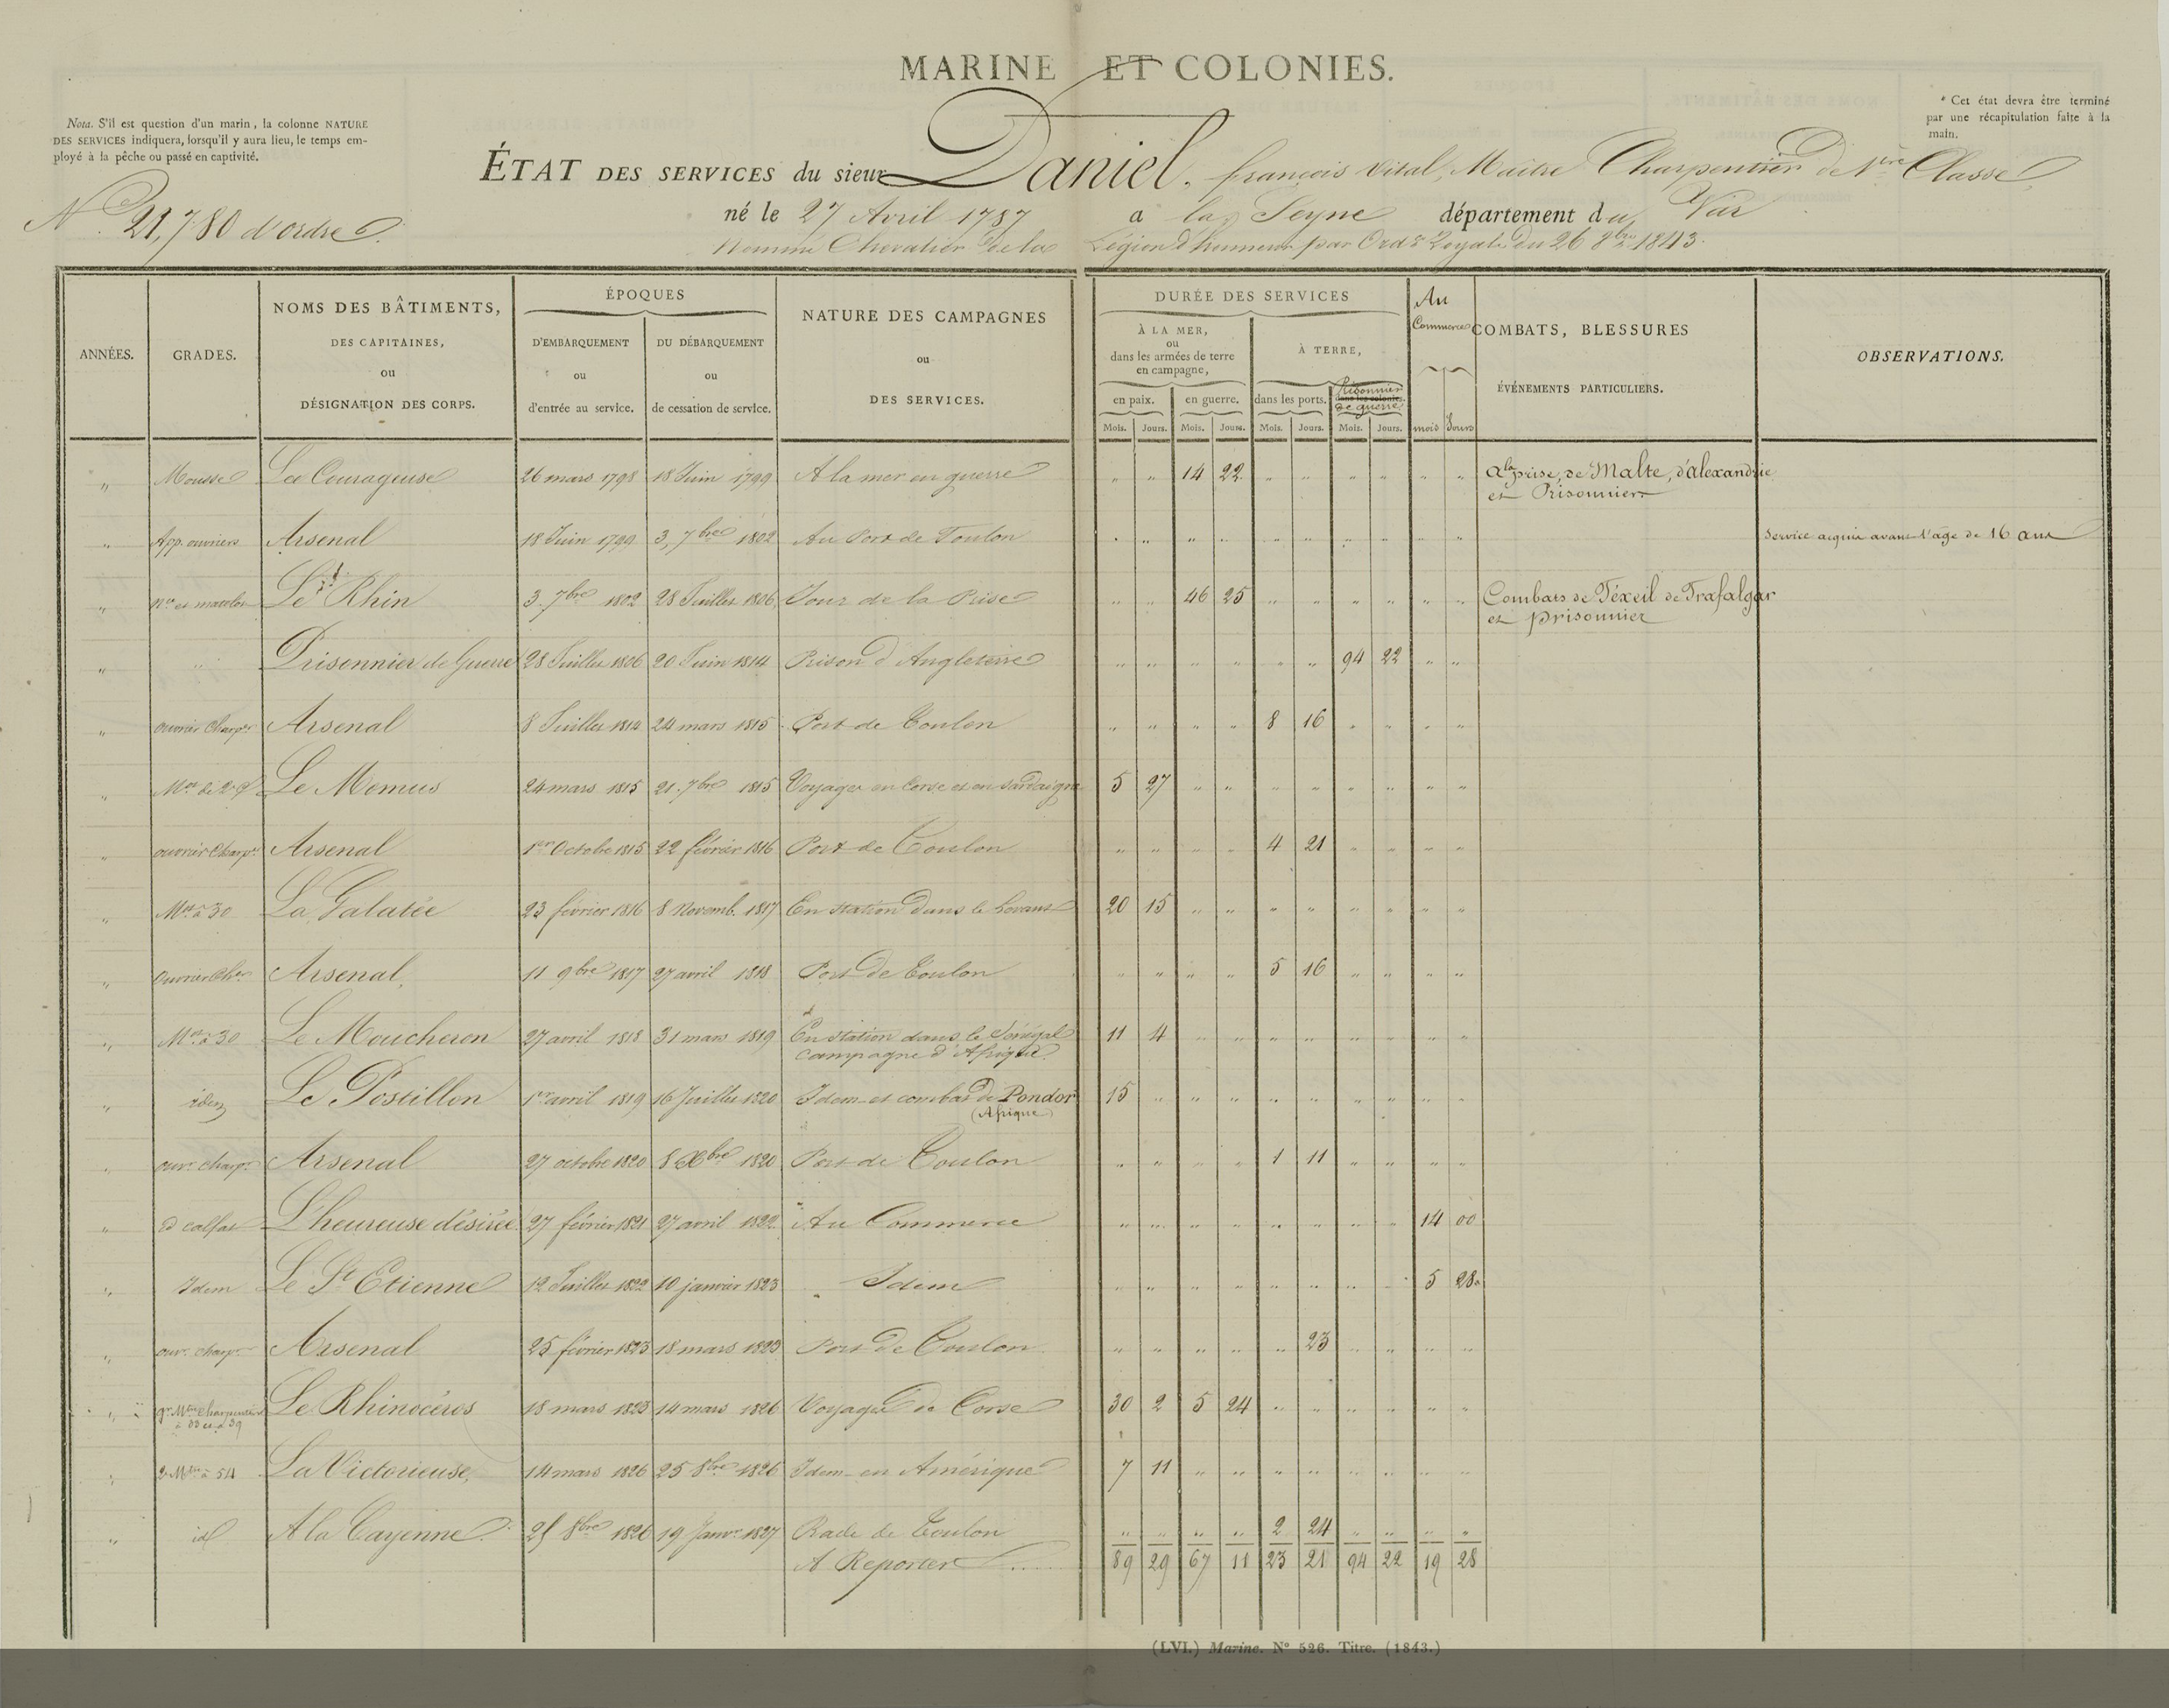 MARINE ET COLONIES.
Nota. S'il est question d'un marin, la colonne NATURE
DES SERVICES indiquera, lorsqu'il y aura lieu, le temps em-
ployé à la pêche ou passé en captivité.
* Cet état devra être terminé
par une récapitulation faite à la
main.
ÉTAT DES SERVICES du sieur Daniel, françois Vital, Maitre Charpentier de 1ère Classe,
N° 21,780 d'ordre.
né le 27 Avril 1787 a la Seyne département du Var
Nommé Chevalier de la Légion d'honneur par Ord.ce Royale du 26 8bre 1843.
ANNÉES. GRADES. NOMS DES BÂTIMENTS, DES CAPITAINES, ou DÉSIGNATION DES CORPS.
ÉPOQUES D'EMBARQUEMENT ou d'entrée au service. DU DÉBARQUEMENT ou de cessation de service.
NATURE DES CAMPAGNES ou DES SERVICES.
DURÉE DES SERVICES À LA MER, ou dans les armées de terre en campagne, À TERRE,
en paix. en guerre. dans les ports. dans les colonies. Prisonnier de guerre
Mois. Jours. Mois. Jours. Mois. Jours. Mois. Jours.
Au Commerce mois Jours
COMBATS, BLESSURES ÉVÉNEMENTS PARTICULIERS.
OBSERVATIONS.
" Mousse La Courageuse 26 mars 1798 18 Juin 1799 A la mer en guerre " " 14 22 " " " " " " a la prise, de Malte, d'alexandrie
et Prisonnier
" App. ouvriers Arsenal 18 Juin 1799 3, 7bre 1802 Au Port de Toulon " " " " " " " " " " Service acquis avant l'âge de 16 ans
" nce et matelot Le Rhin 3. 7bre 1802 28 Juillet 1806 Jour de la Prise " " 46 25 " " " " " " Combats de Téxeil de Trafalgar
et prisonnier
" " Prisonnier de Guerre 28 Juillet 1806 20 Juin 1814 Prison d'Angleterre " " " " " " 94 22 " "
" ouvrier Charp.er Arsenal 8 Juillet 1814 24 mars 1815 Port de Toulon " " " " 8 16 " " " "
" Mot de 2e Le Momus 24 mars 1815 21. 7bre 1815 Voyages en Corse et en Sardaigne 5 27 " " " " " " " "
" ouvrier Charp.er Arsenal 1er Octobre 1815 22 février 1816 Port de Toulon " " " " 4 21 " " " "
" Mot à 30 La Galatée 23 février 1816 8 Novemb. 1817 En station dans le Levant 20 15 " " " " " " " "
" Ouvrier Cher Arsenal, 11 9bre 1817 27 avril 1818 Port de Toulon " " " " 5 16 " " " "
" Mot à 30 Le Moucheron 27 avril 1818 31 mars 1819 En station dans le Sénégal 11 4 " " " " " " " "
campagne d'Afrique.
" idem Le Postillon 1er avril 1819 16 Juillet 1820 Idem et combat de Pondor 15 " " " " " " " " "
(Afrique)
" ouvr. charp.er Arsenal 27 octobre 1820 8 Xbre 1820 Port de Toulon " " " " 1 11 " " " "
" Id calfat L'heureuse désirée 27 février 1821 27 avril 1822 Au Commerce " " " " " " " " 14 00
" Idem Le St Etienne 12 Juillet 1822 10 janvier 1823 Idem " " " " " " " " 5 28
" ouvr. charp.er Arsenal 25 février 1823 18 mars 1823 Port de Toulon " " " " " 23 " " " "
" Mtre charpentier Le Rhinocéros 18 mars 1823 14 mars 1826 Voyages de Corse 30 2 5 24 " " " " " "
à 33 et à 39
" 2e Mtre à 54 La Victorieuse, 14 mars 1826 25 8bre 1826 Idem en Amérique 7 11 " " " " " " " "
" id A la Cayenne. 25 8bre 1826 19 Janvr 1827 Rade de Toulon " " " " 2 24 " " " "
A Reporter ..... 89 29 67 11 23 21 94 22 19 28
(LVI.) Marine. N° 526. Titre. (1843.)